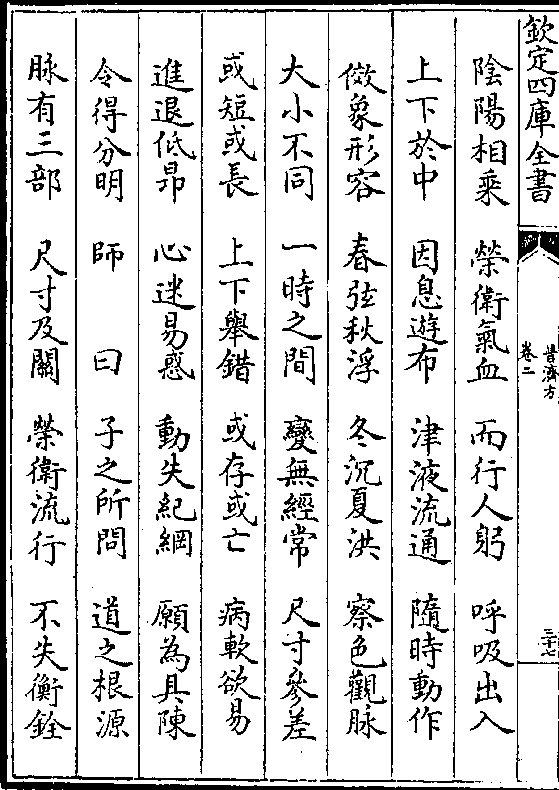 欽定四庫全書
普濟方
卷二
三十七
陰陽相乘 榮衛氣血 而行人躬 呼吸出入
上下於中 因息遊布 津液流通 隨時動作
傚象形容 春弦秋浮 冬沉夏洪 察色觀脉
大小不同 一時之間 變無經常 尺寸參差
或短或長 上下舉錯 或存或亡 病軟欲易
進退低昻 心迷易惑 動失紀綱 願為具陳
令得分明 師曰 子之所問 道之根源
脉有三部 尺寸及關 榮衛流行 不失衡銓